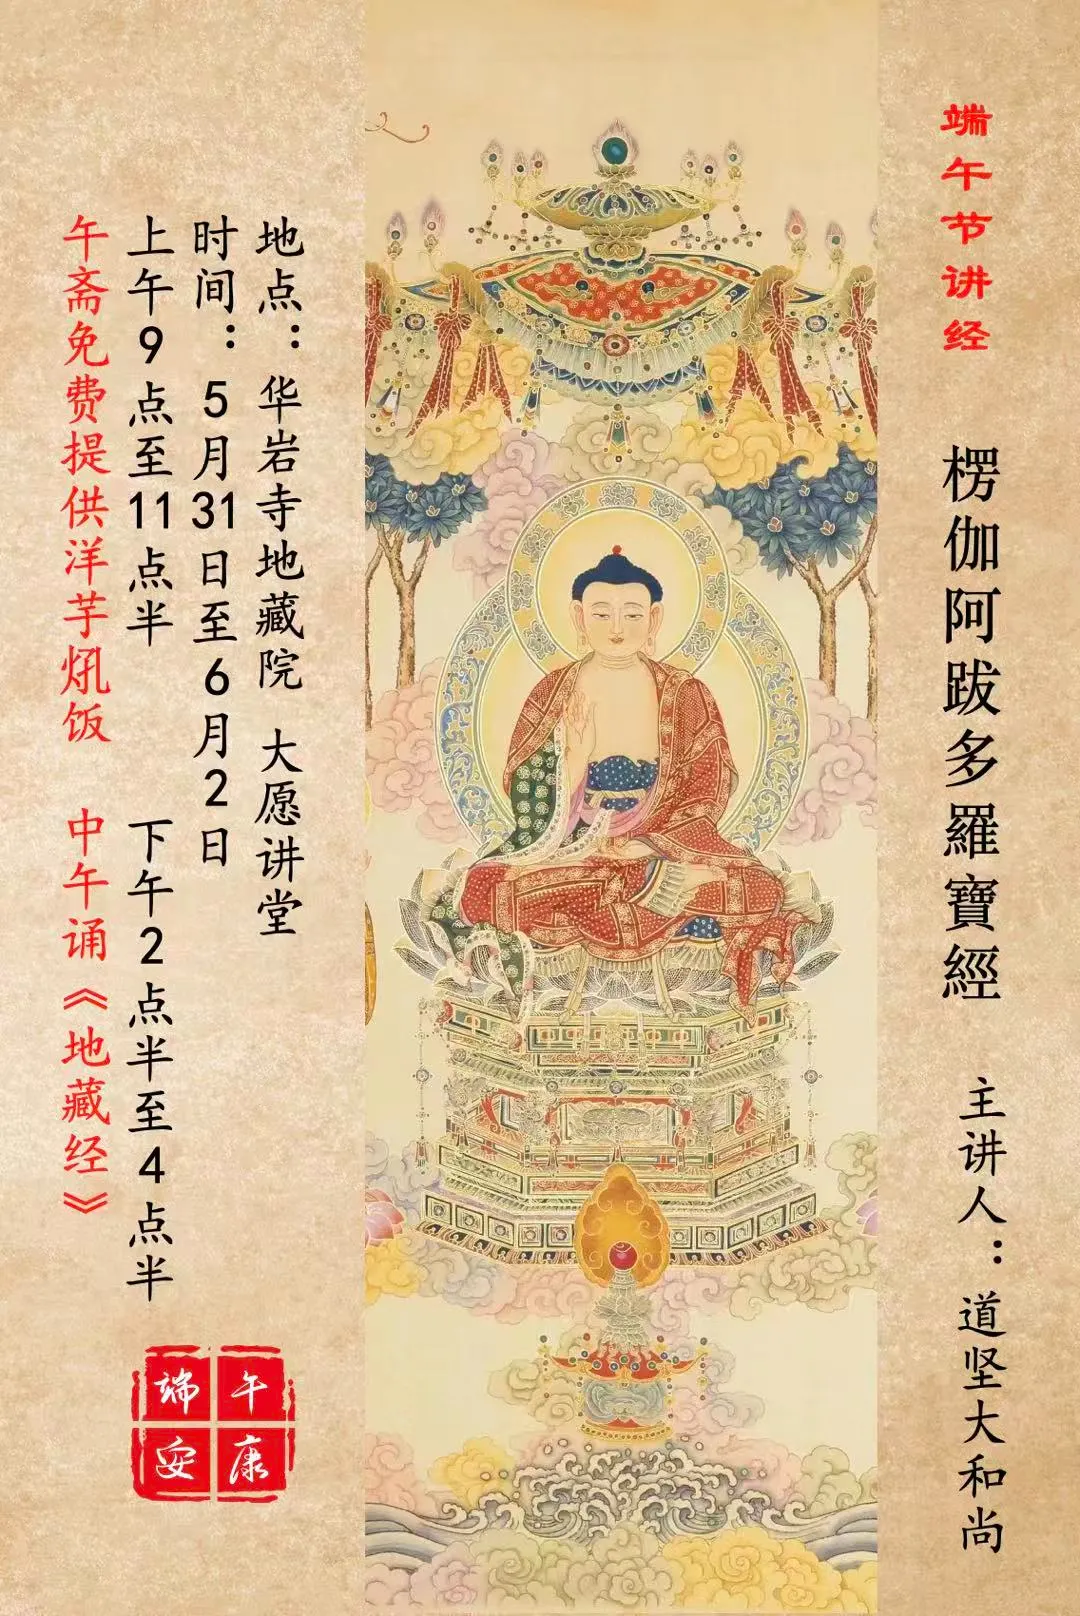 端午节讲经
楞伽阿跋多羅寶經
主讲人：道坚大和尚
地点：华岩寺地藏院 大愿讲堂
时间：5月31日至6月2日
上午9点至11点半 下午2点半至4点半
午斋免费提供洋芋炕饭 中午诵《地藏经》
端午
安康